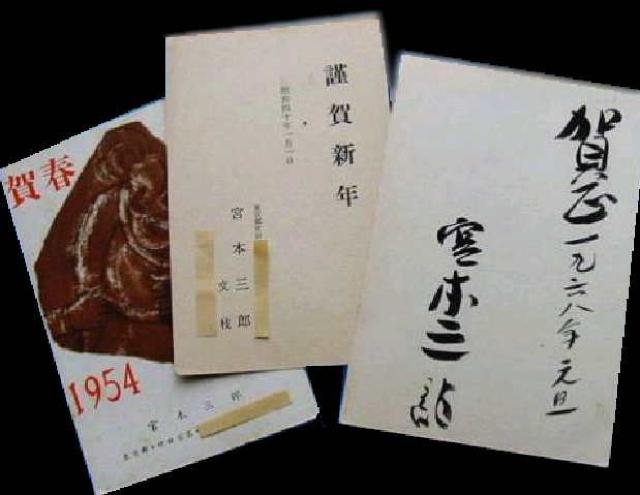 賀春
1954
宮本三郎
謹賀新年
昭和四十年一月一日
宮本三郎
文枝
賀正
一九六八年元旦
宮本三郎